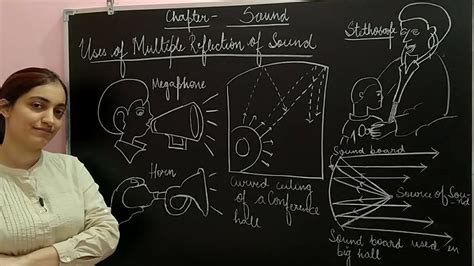 Chapter- Sound
Uses of Multiple Reflection of Sound
Stethoscope
Megaphone
Horn
Curved ceiling
of a Conference
hall
Sound board
Source of Sou-
nd
Sound board used in
big hall